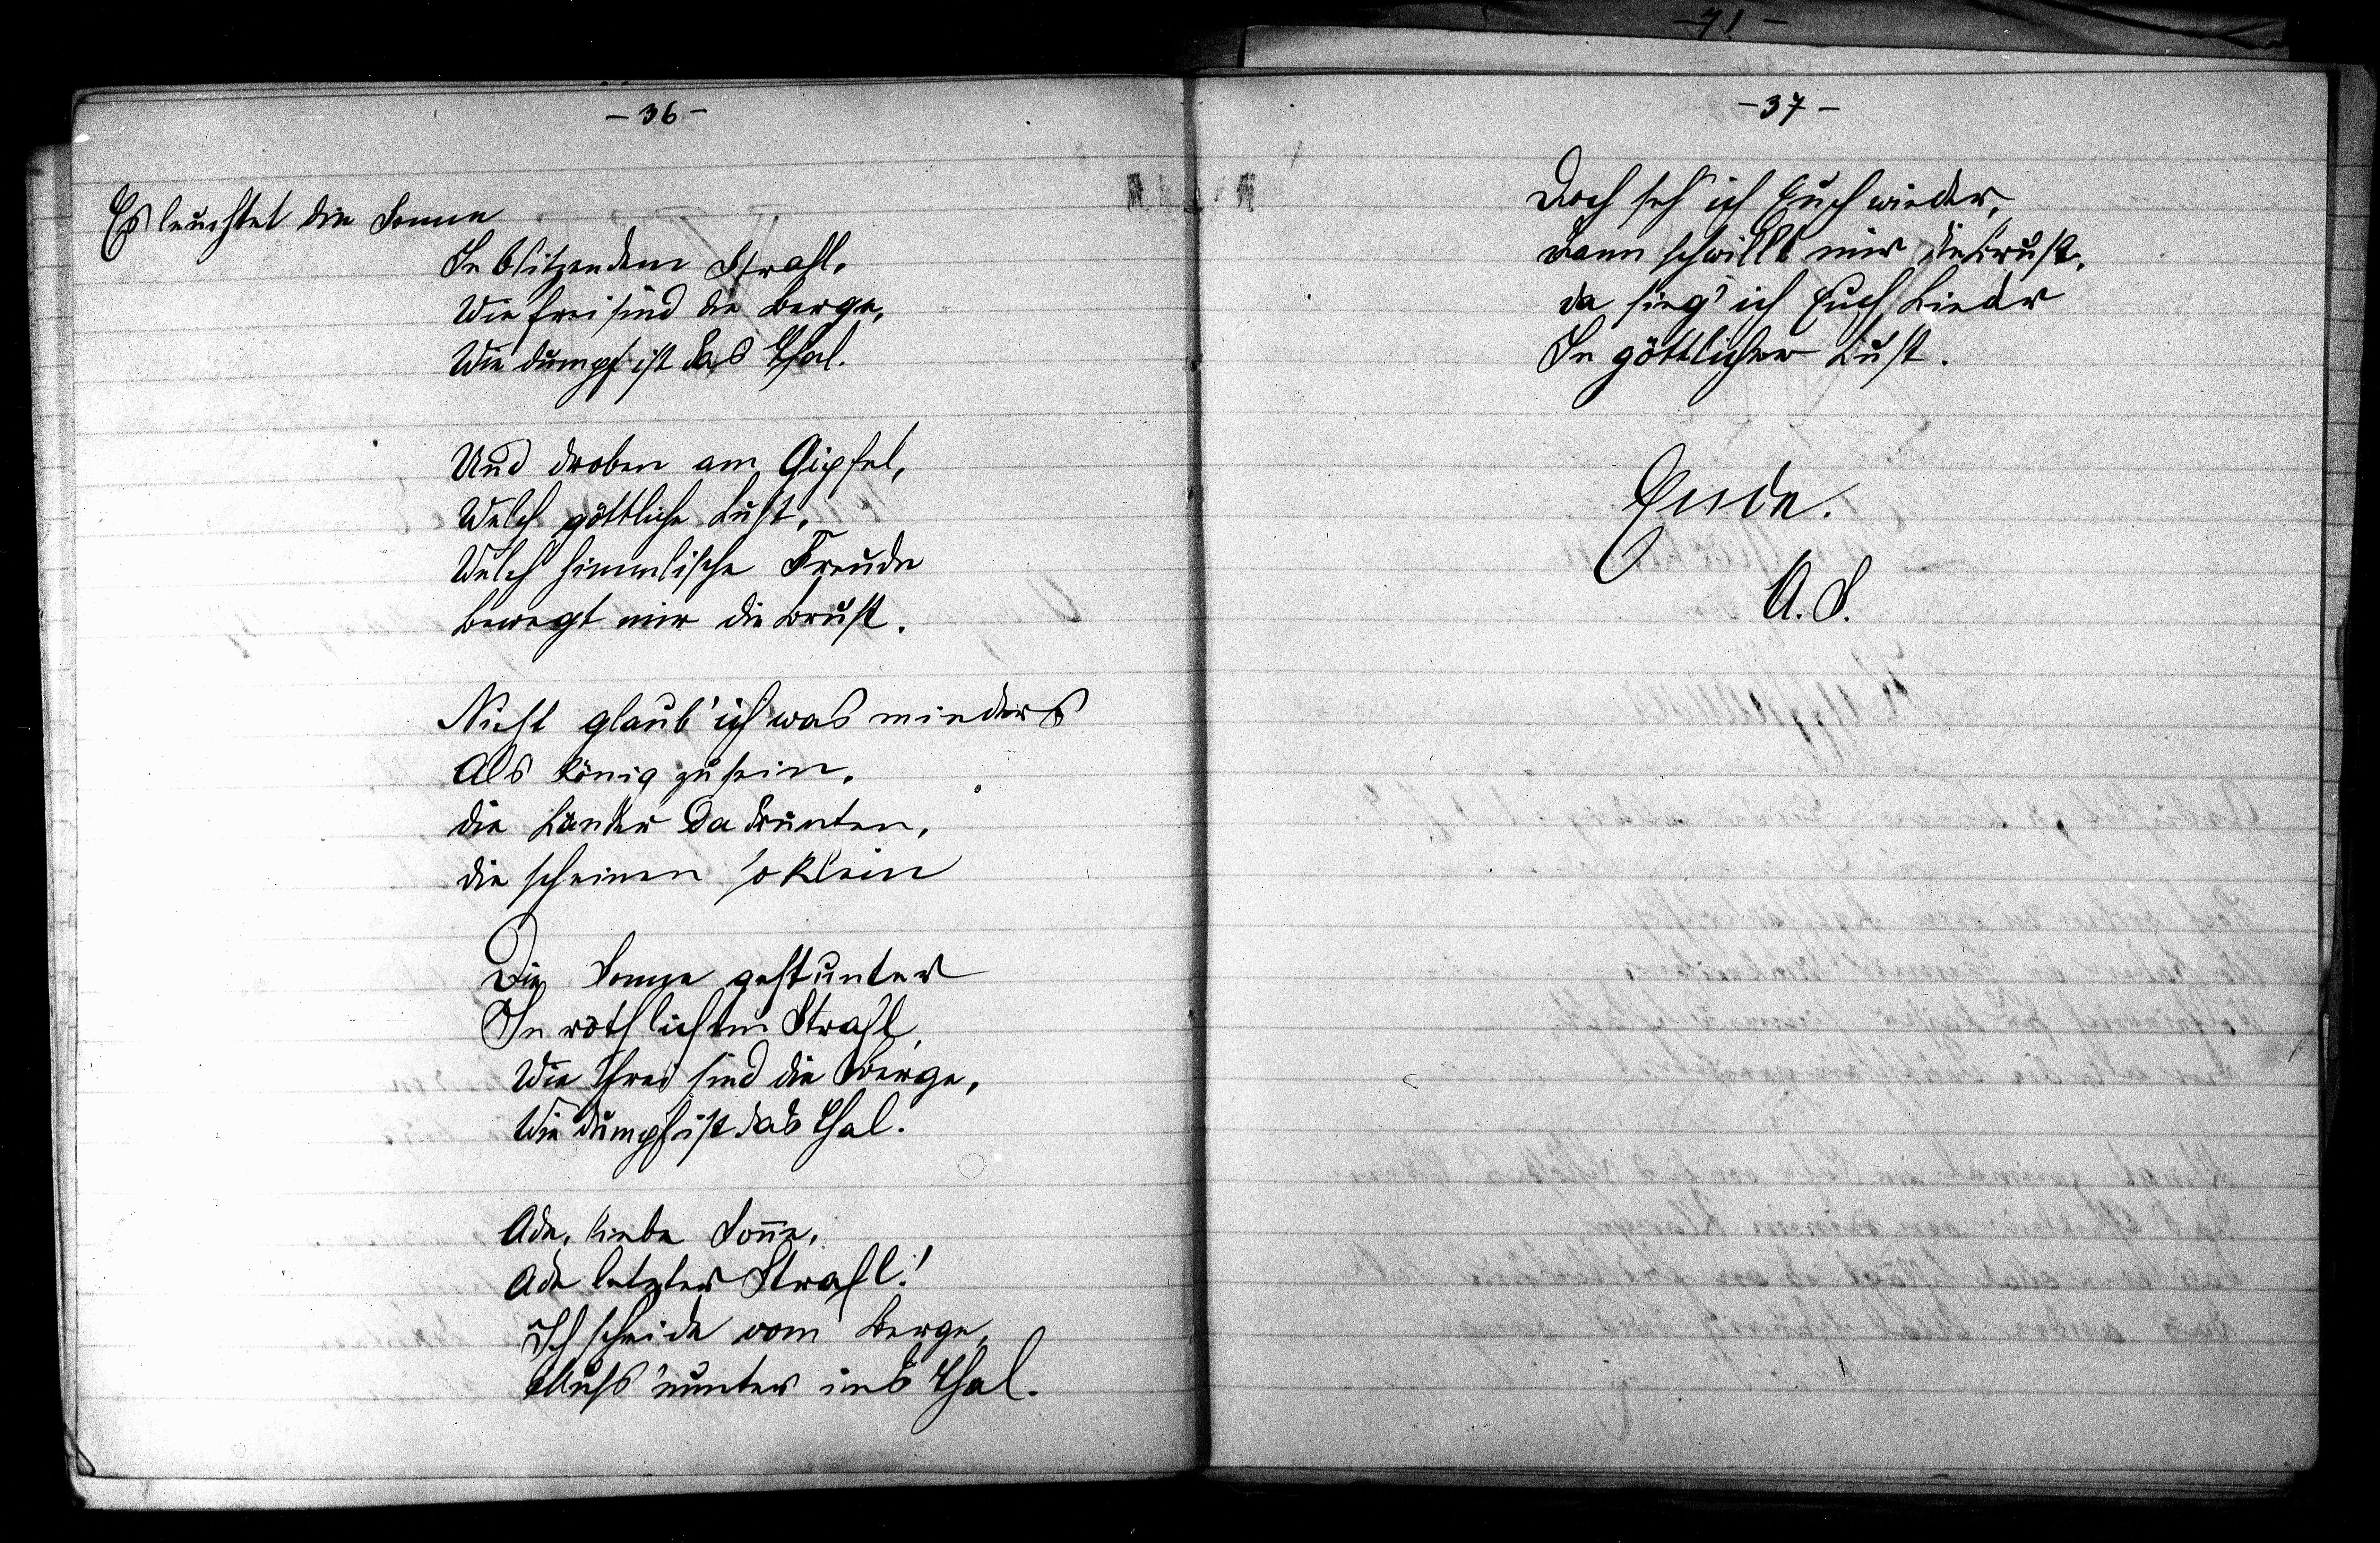 - 36 -
Es leuchtet die Sonne
In blitzendem Strahl,
Wie frei sind die Berge,
Wie dumpf ist das Thal.
Und droben am Gipfel,
Welch göttliche Lust,
Welch himmlische Freude
Bewegt mir die Brust.
Nicht glaub' ich was minders
Als König zu sein,
die Länder da drunten,
die scheinen so klein
Die Sonne geht unter
In röthlichem Strahl,
Wie frei sind die Berge,
Wie dumpf ist das Thal.
Ade, liebe Soñe,
Ade letzter Strahl!
Ich scheide vom Berge,
Muß 'nunter ins Thal.
- 71 -
- 37 -
Doch seh' ich Euch wieder,
dann schwillt mir die Brust,
da sing' ich Euch Lieder
In göttlicher Lust.
Ende.
A. S.